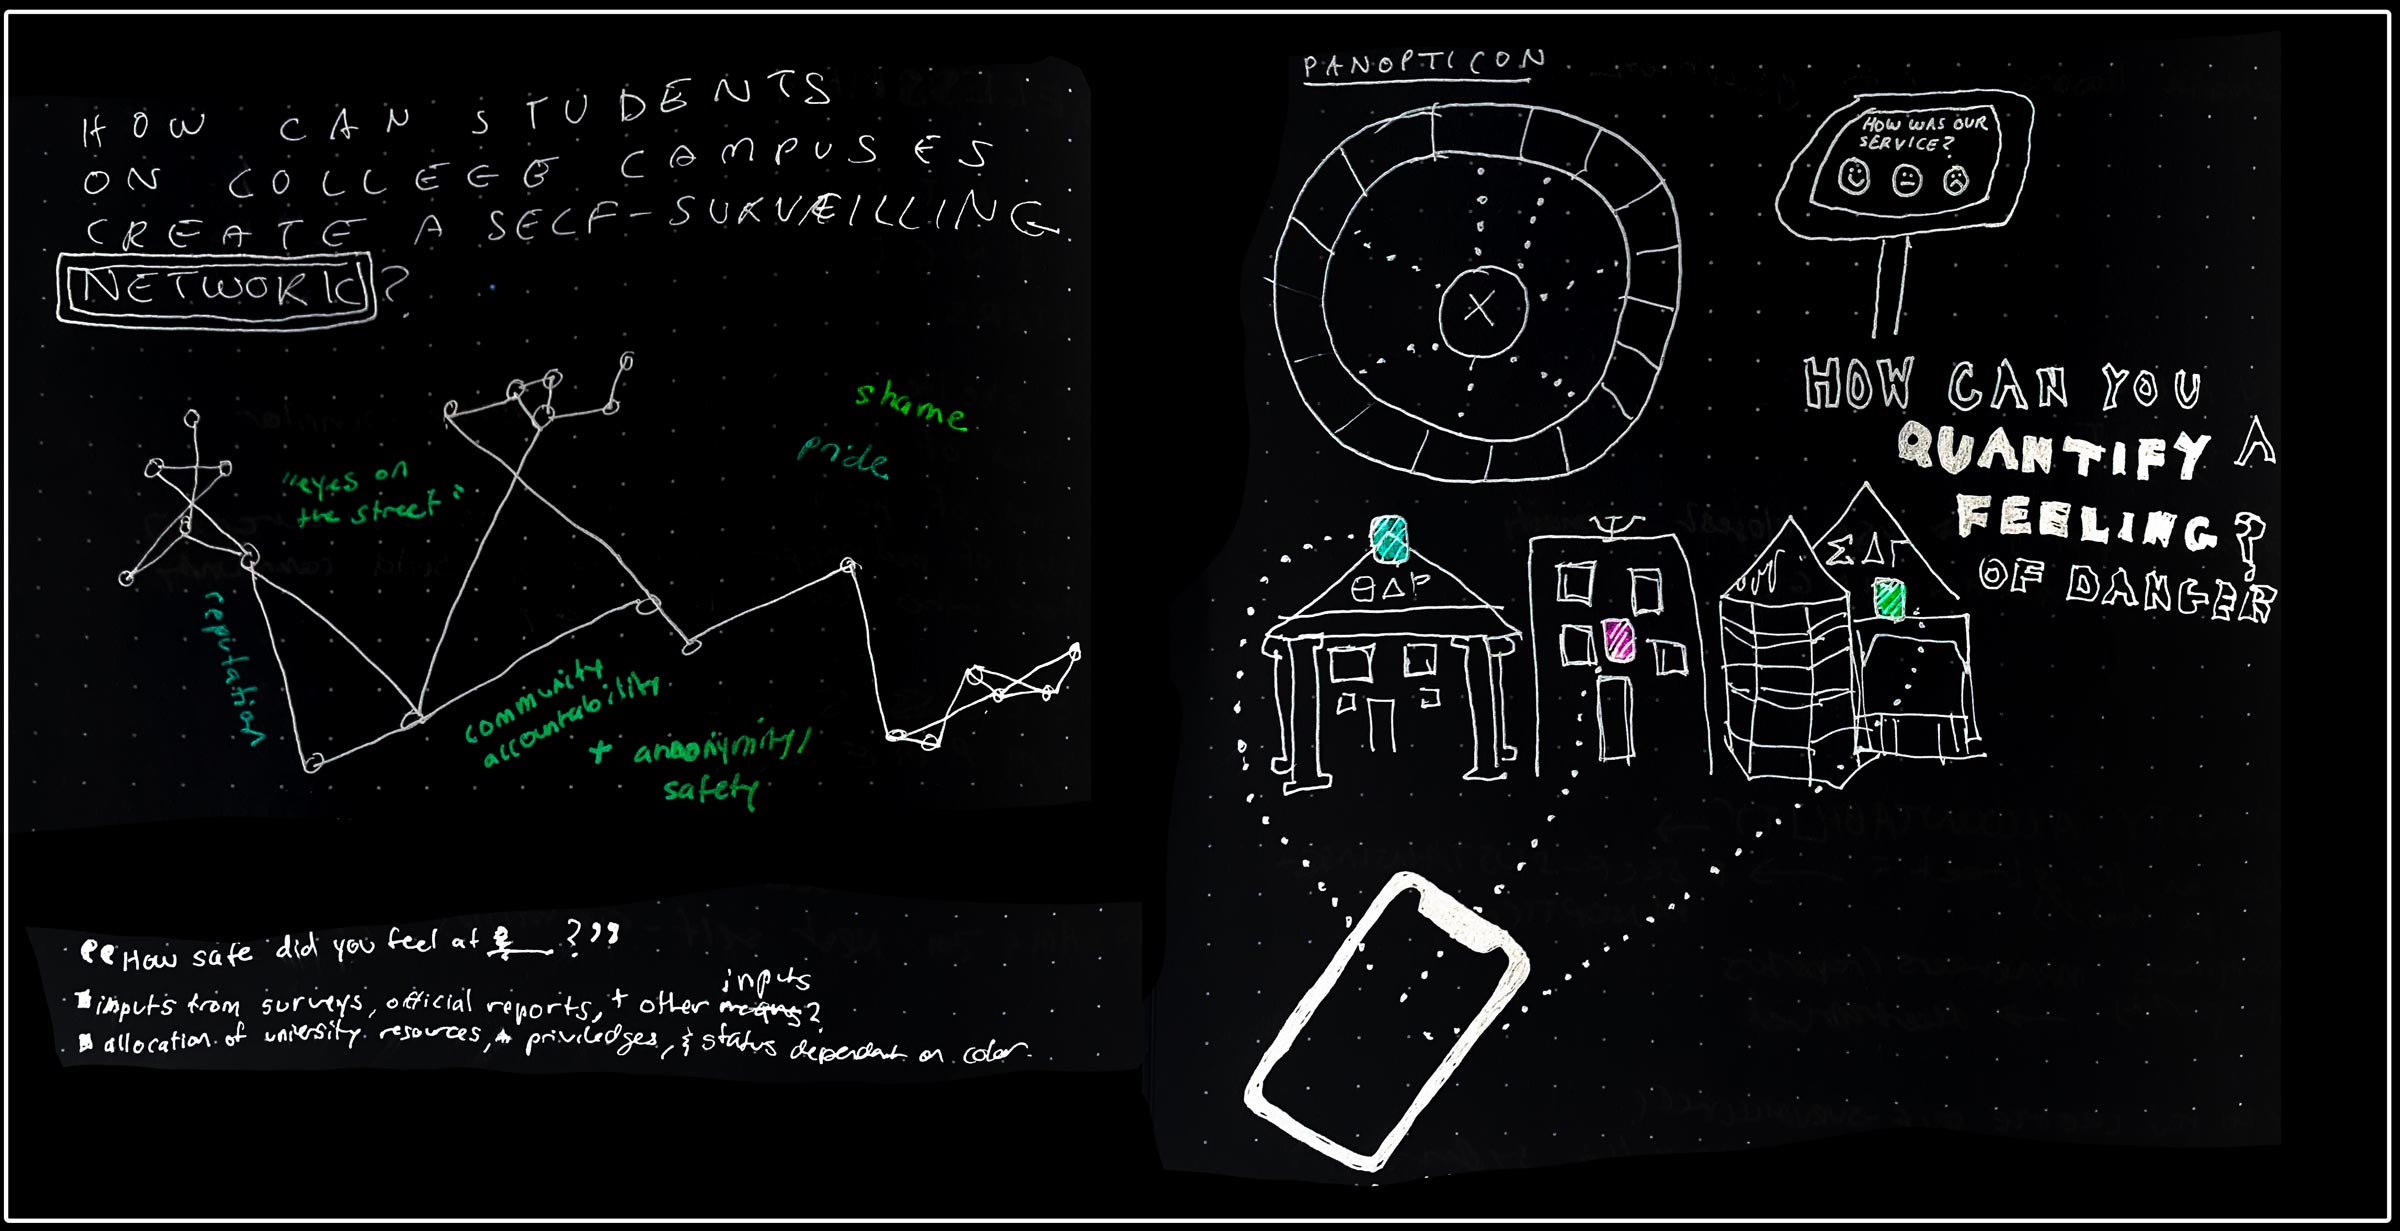 HOW CAN STUDENTS
ON COLLEGE CAMPUSES
CREATE A SELF-SURVEILLING
NETWORK?
shame
pride
"eyes on
the street"
reputation
community
accountability
+ anonymity/
safety
"How safe did you feel at ___?"
inputs
inputs from surveys, official reports, + other means?
allocation of university resources, priviledges, & status dependant on color.
PANOPTICON
HOW WAS OUR
SERVICE?
HOW CAN YOU
QUANTIFY A
FEELING?
OF DANGER
ΘΔΡ
ΣΔΓ